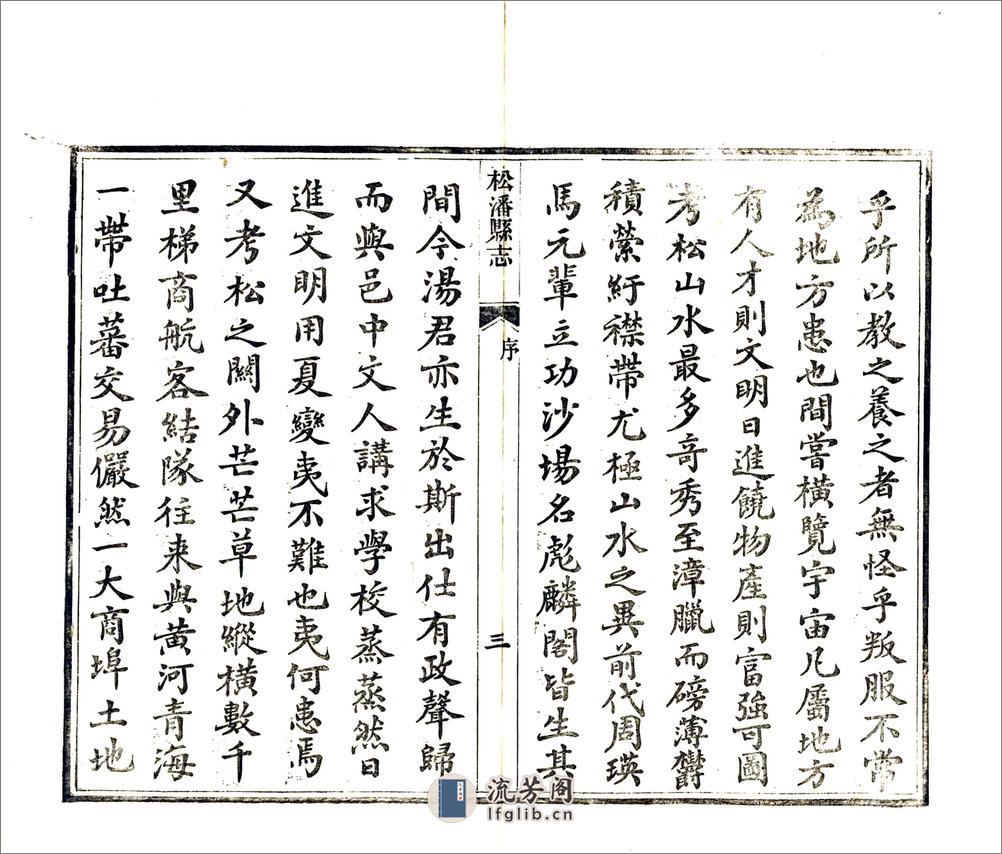 乎所以教之養之者無怪乎叛服不常
為地方患也間嘗橫覽宇宙凡屬地方
有人才則文明日進饒物產則富強可圖
考松山水最多奇秀至漳臘而磅薄欝
積縈紆襟帶尤極山水之異前代周瑛
馬元輩立功沙場名彪麟閣皆生其
松潘縣志
序
三
間今湯君亦生於斯出仕有政聲歸
而與邑中文人講求學校蒸蒸然日
進文明用夏變夷不難也夷何患焉
又考松之關外芒芒草地縱橫數千
里梯商航客結隊往来與黃河青海
一帶吐蕃交易儼然一大商埠土地
流芳阁
lfglib.cn